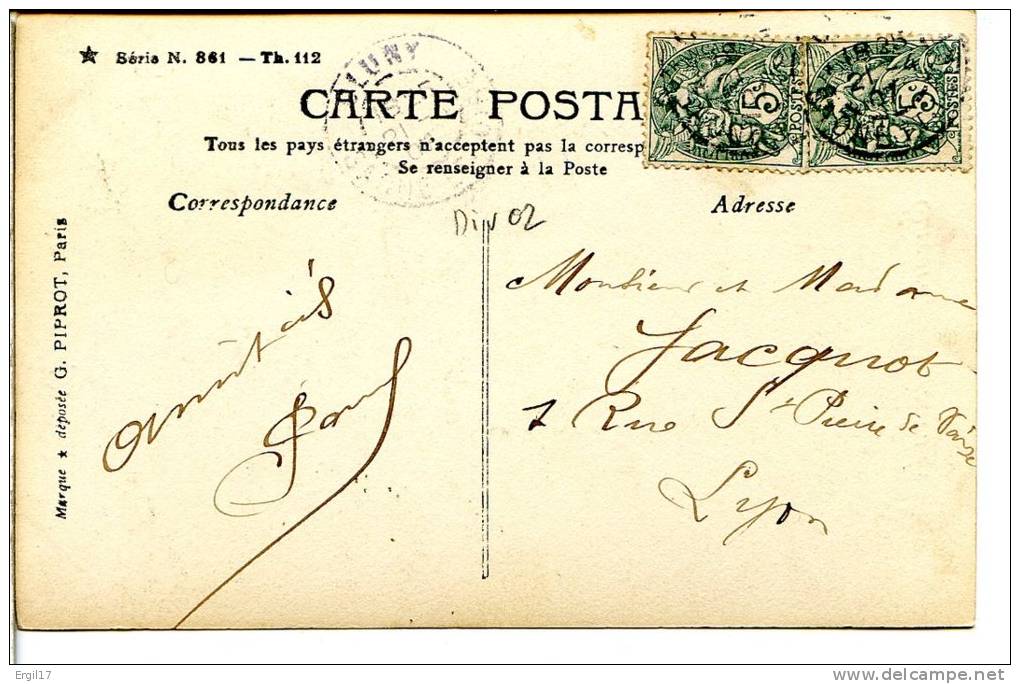 ★ Série N. 861 — Th. 112
CLUNY
CARTE POSTA
Tous les pays étrangers n'acceptent pas la corresp
Se renseigner à la Poste
5 POSTES
5 POSTES
Correspondance
Adresse
Div 02
Marque ★ déposée G. PIPROT, Paris
Amitais
Paul
Monsieur et Madame
Jacquot
1 Rue St Pierre de Vaise
Lyon
Ergil17
www.delcampe.net